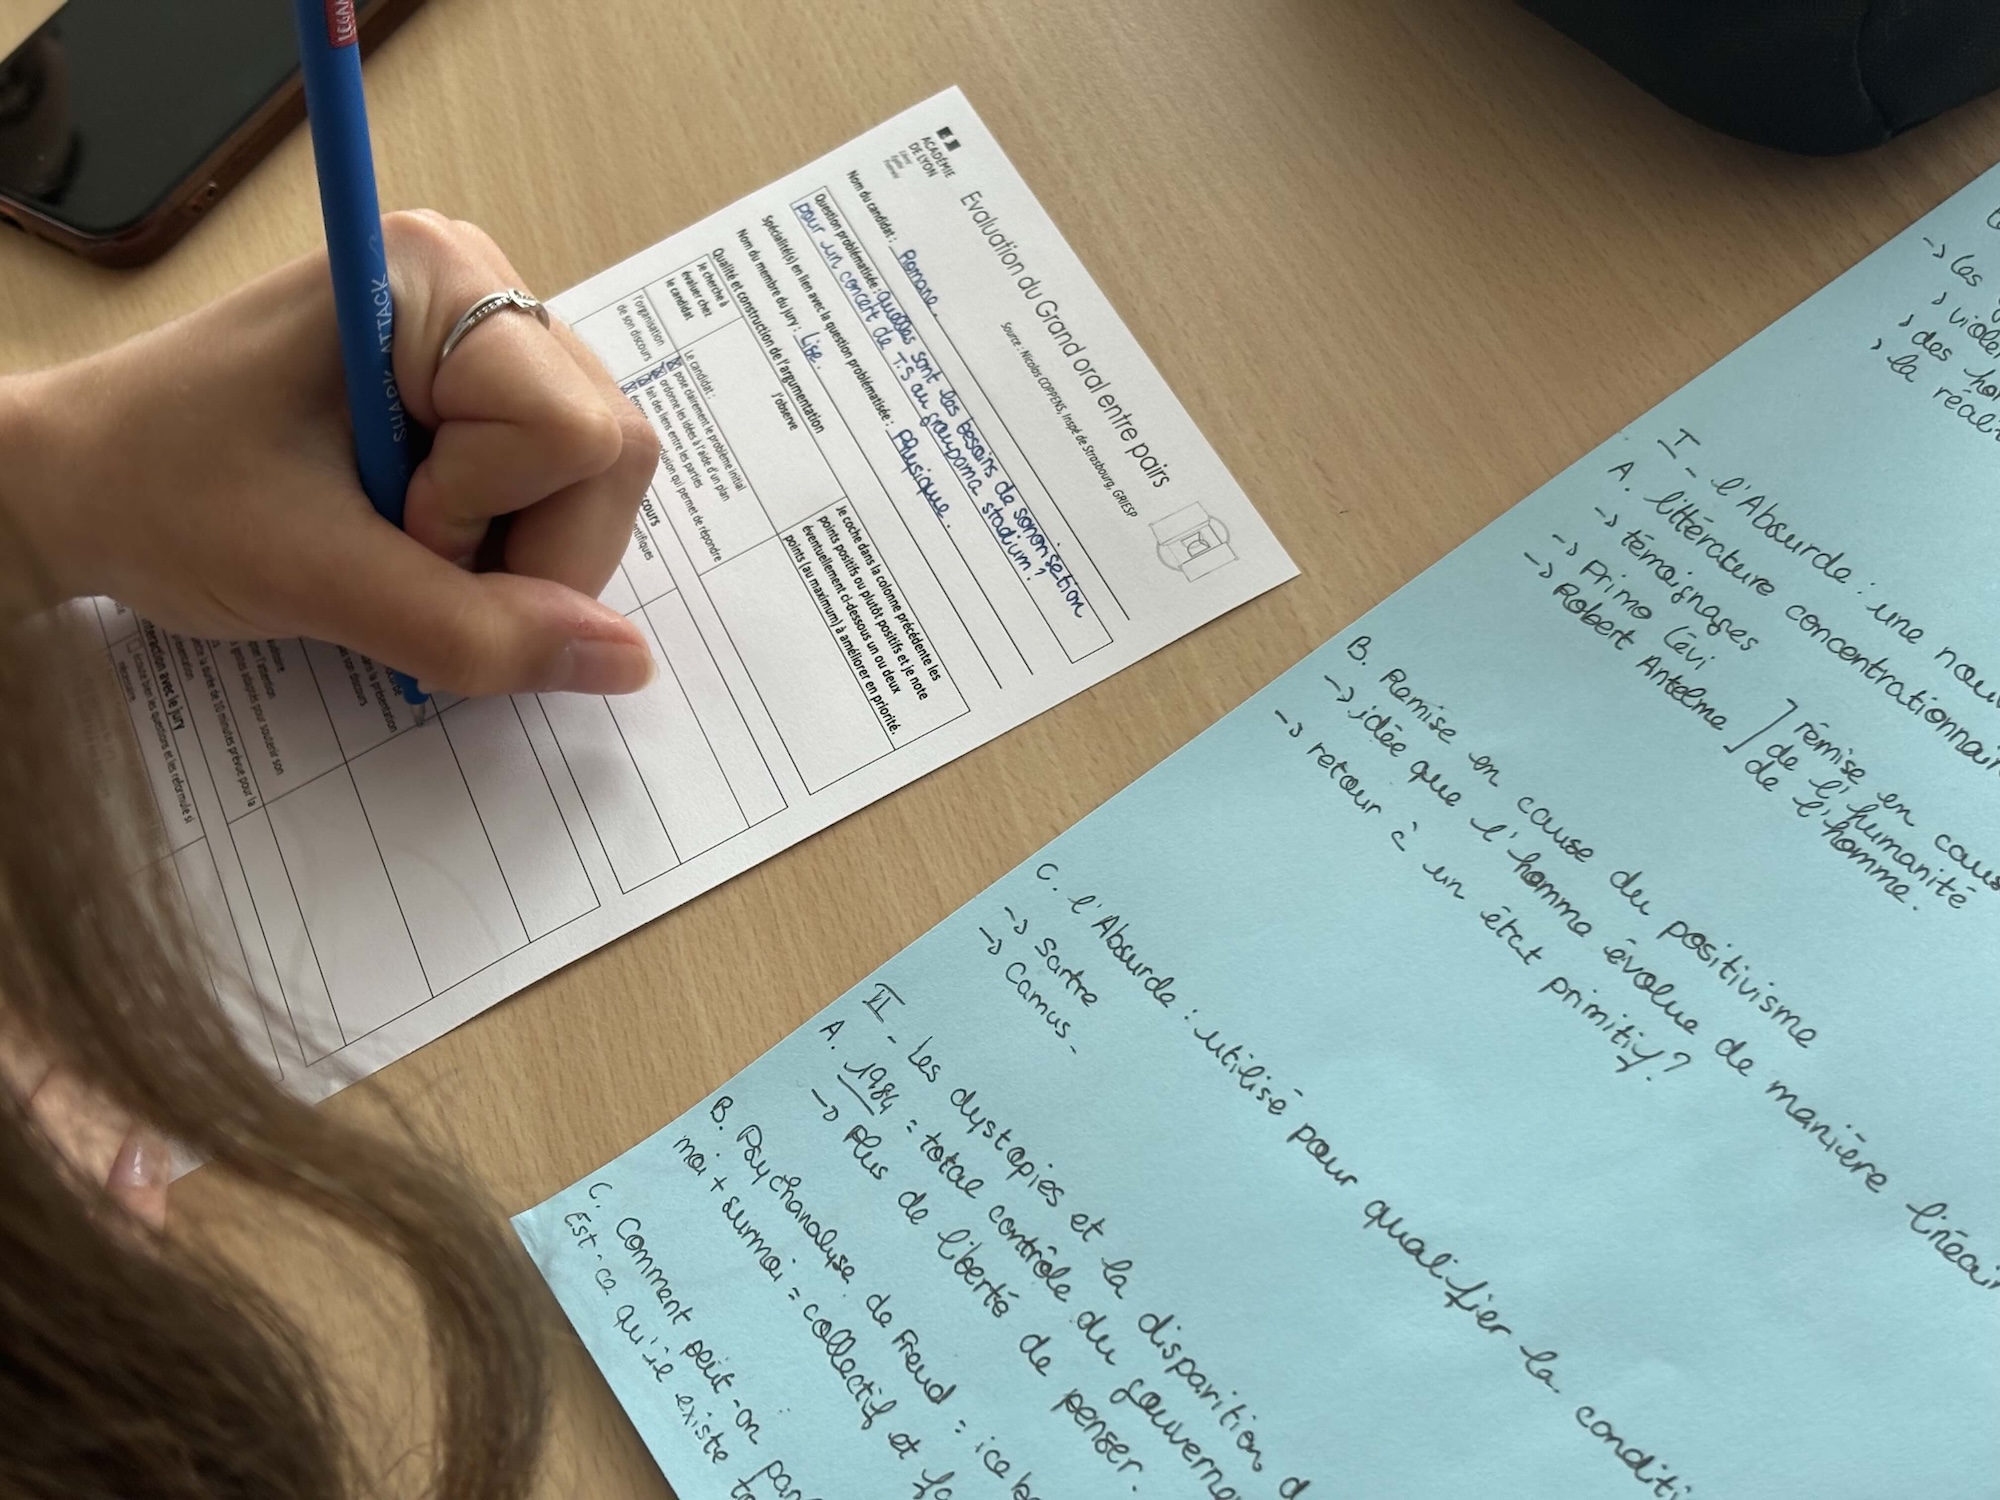 LEGAMI
SHARK ATTACK
ACADÉMIE
DE LYON
Liberté
Égalité
Fraternité
Evaluation du Grand oral entre pairs
Source : Nicolas COPPENS, Inspé de Strasbourg, GRIESP
Nom du candidat : Romane.
Question problématisée : quelles sont les besoins de sonorisation
pour un concert de T.S au groupama stadium ?
Spécialité(s) en lien avec la question problématisée : Physique.
Nom du membre du jury : Lise.
Qualité et construction de l'argumentation
Je cherche à
évaluer chez
le candidat
J'observe
Je coche dans la colonne précédente les
points positifs ou plutôt positifs et je note
éventuellement ci-dessous un ou deux
points (au maximum) à améliorer en priorité.
l'organisation
de son discours
Le candidat :
pose clairement le problème initial
ordonne les idées à l'aide d'un plan
fait des liens entre les parties
qui permet de répondre
cours
entifiques
dans la présentation
son discours
pour l'attention
gestes adaptés pour soutenir son
la durée de 10 minutes prévue pour la
présentation
interaction avec le jury
écoute bien les questions et les reformule si
nécessaire
-> les
violen
des hom
la réali
I - l'Absurde : une nouv
A. littérature concentrationnair
-> témoignages
-> Primo Lévi
-> Robert Antelme
rémise en caus
de l'humanité
de l'homme.
B. Remise en cause du positivisme
-> idée que l'homme évolue de manière linéair
-> retour à un état primitif ?
C. l'Absurde : utilisé pour qualifier la conditi
-> Sartre
-> Camus -
II - Les dystopies et la disparition d
A. 1984 = total contrôle du gouverne
-> Plus de liberté de penser.
B. Psychanalyse de Freud = iceb
moi + surmoi = collectif et fa
C. Comment peut-on par
Est-ce qu'il existe